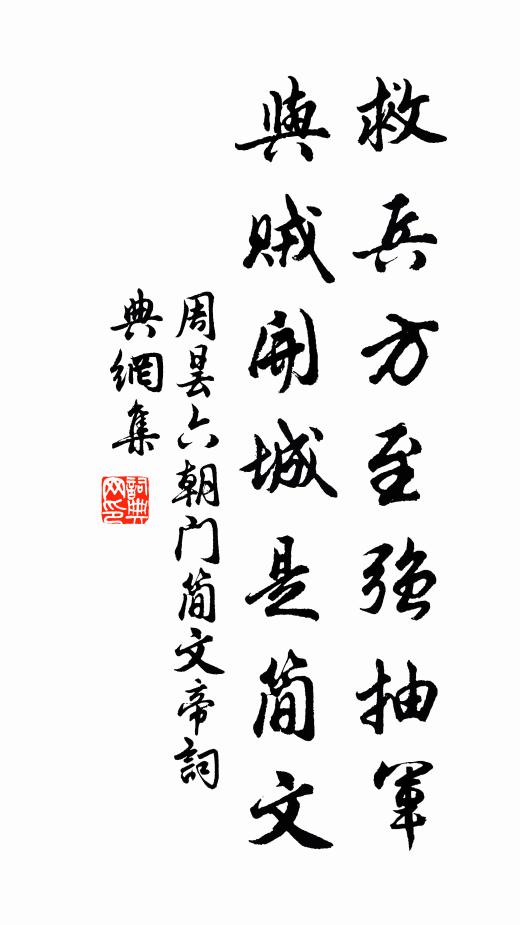 救兵方至強抽軍
與賊開城是簡文
周曇六朝门簡文帝詞
典網集
詞典网印